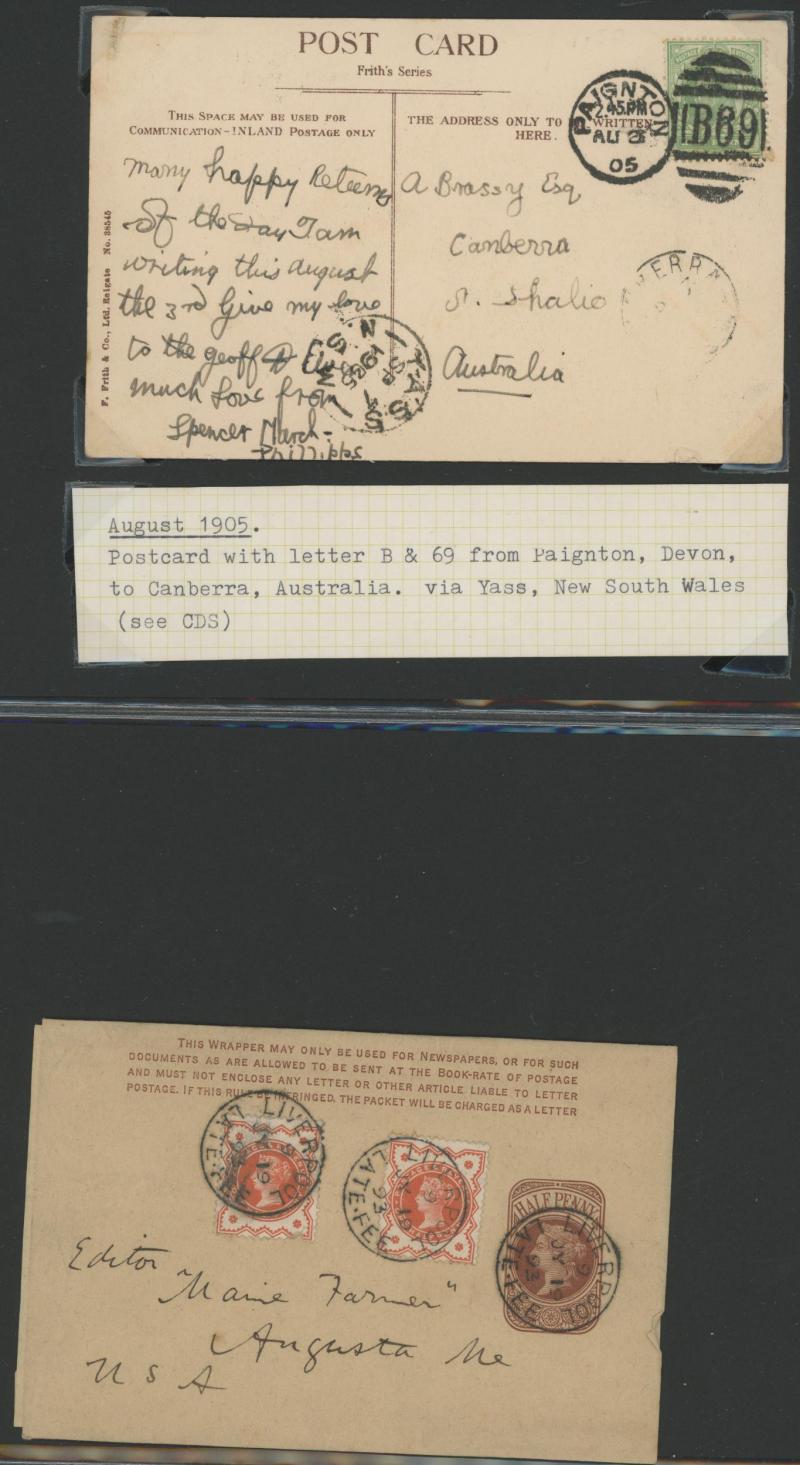 POST CARD
Frith's Series
THIS SPACE MAY BE USED FOR
COMMUNICATION—INLAND POSTAGE ONLY
THE ADDRESS ONLY TO WRITTEN
HERE.
PAIGNTON
2.45 PM
AU
05
B69
F. Frith & Co., Ltd. Reigate No. 38545
Many happy Returns
of the day I am
writing this august
the 3rd Give my love
to the geoff
much love from
Spencer March-
Phillipps
A Brassy Esq
Canberra
Australia
YASS
N.S.W
August 1905.
Postcard with letter B & 69 from Paignton, Devon,
to Canberra, Australia. via Yass, New South Wales
(see CDS)
THIS WRAPPER MAY ONLY BE USED FOR NEWSPAPERS, OR FOR SUCH
DOCUMENTS AS ARE ALLOWED TO BE SENT AT THE BOOK-RATE OF POSTAGE
AND MUST NOT ENCLOSE ANY LETTER OR OTHER ARTICLE LIABLE TO LETTER
POSTAGE. IF THIS RULE BE INFRINGED, THE PACKET WILL BE CHARGED AS A LETTER
LIVERPOOL
LATE.FEE
LIVERPOOL
9
JY 19
93
LATE.FEE
HALFPENNY
LIVERPOOL
9
JY 19
93
LATE.FEE
Editor
"Maine Farmer"
Augusta Me
U S A